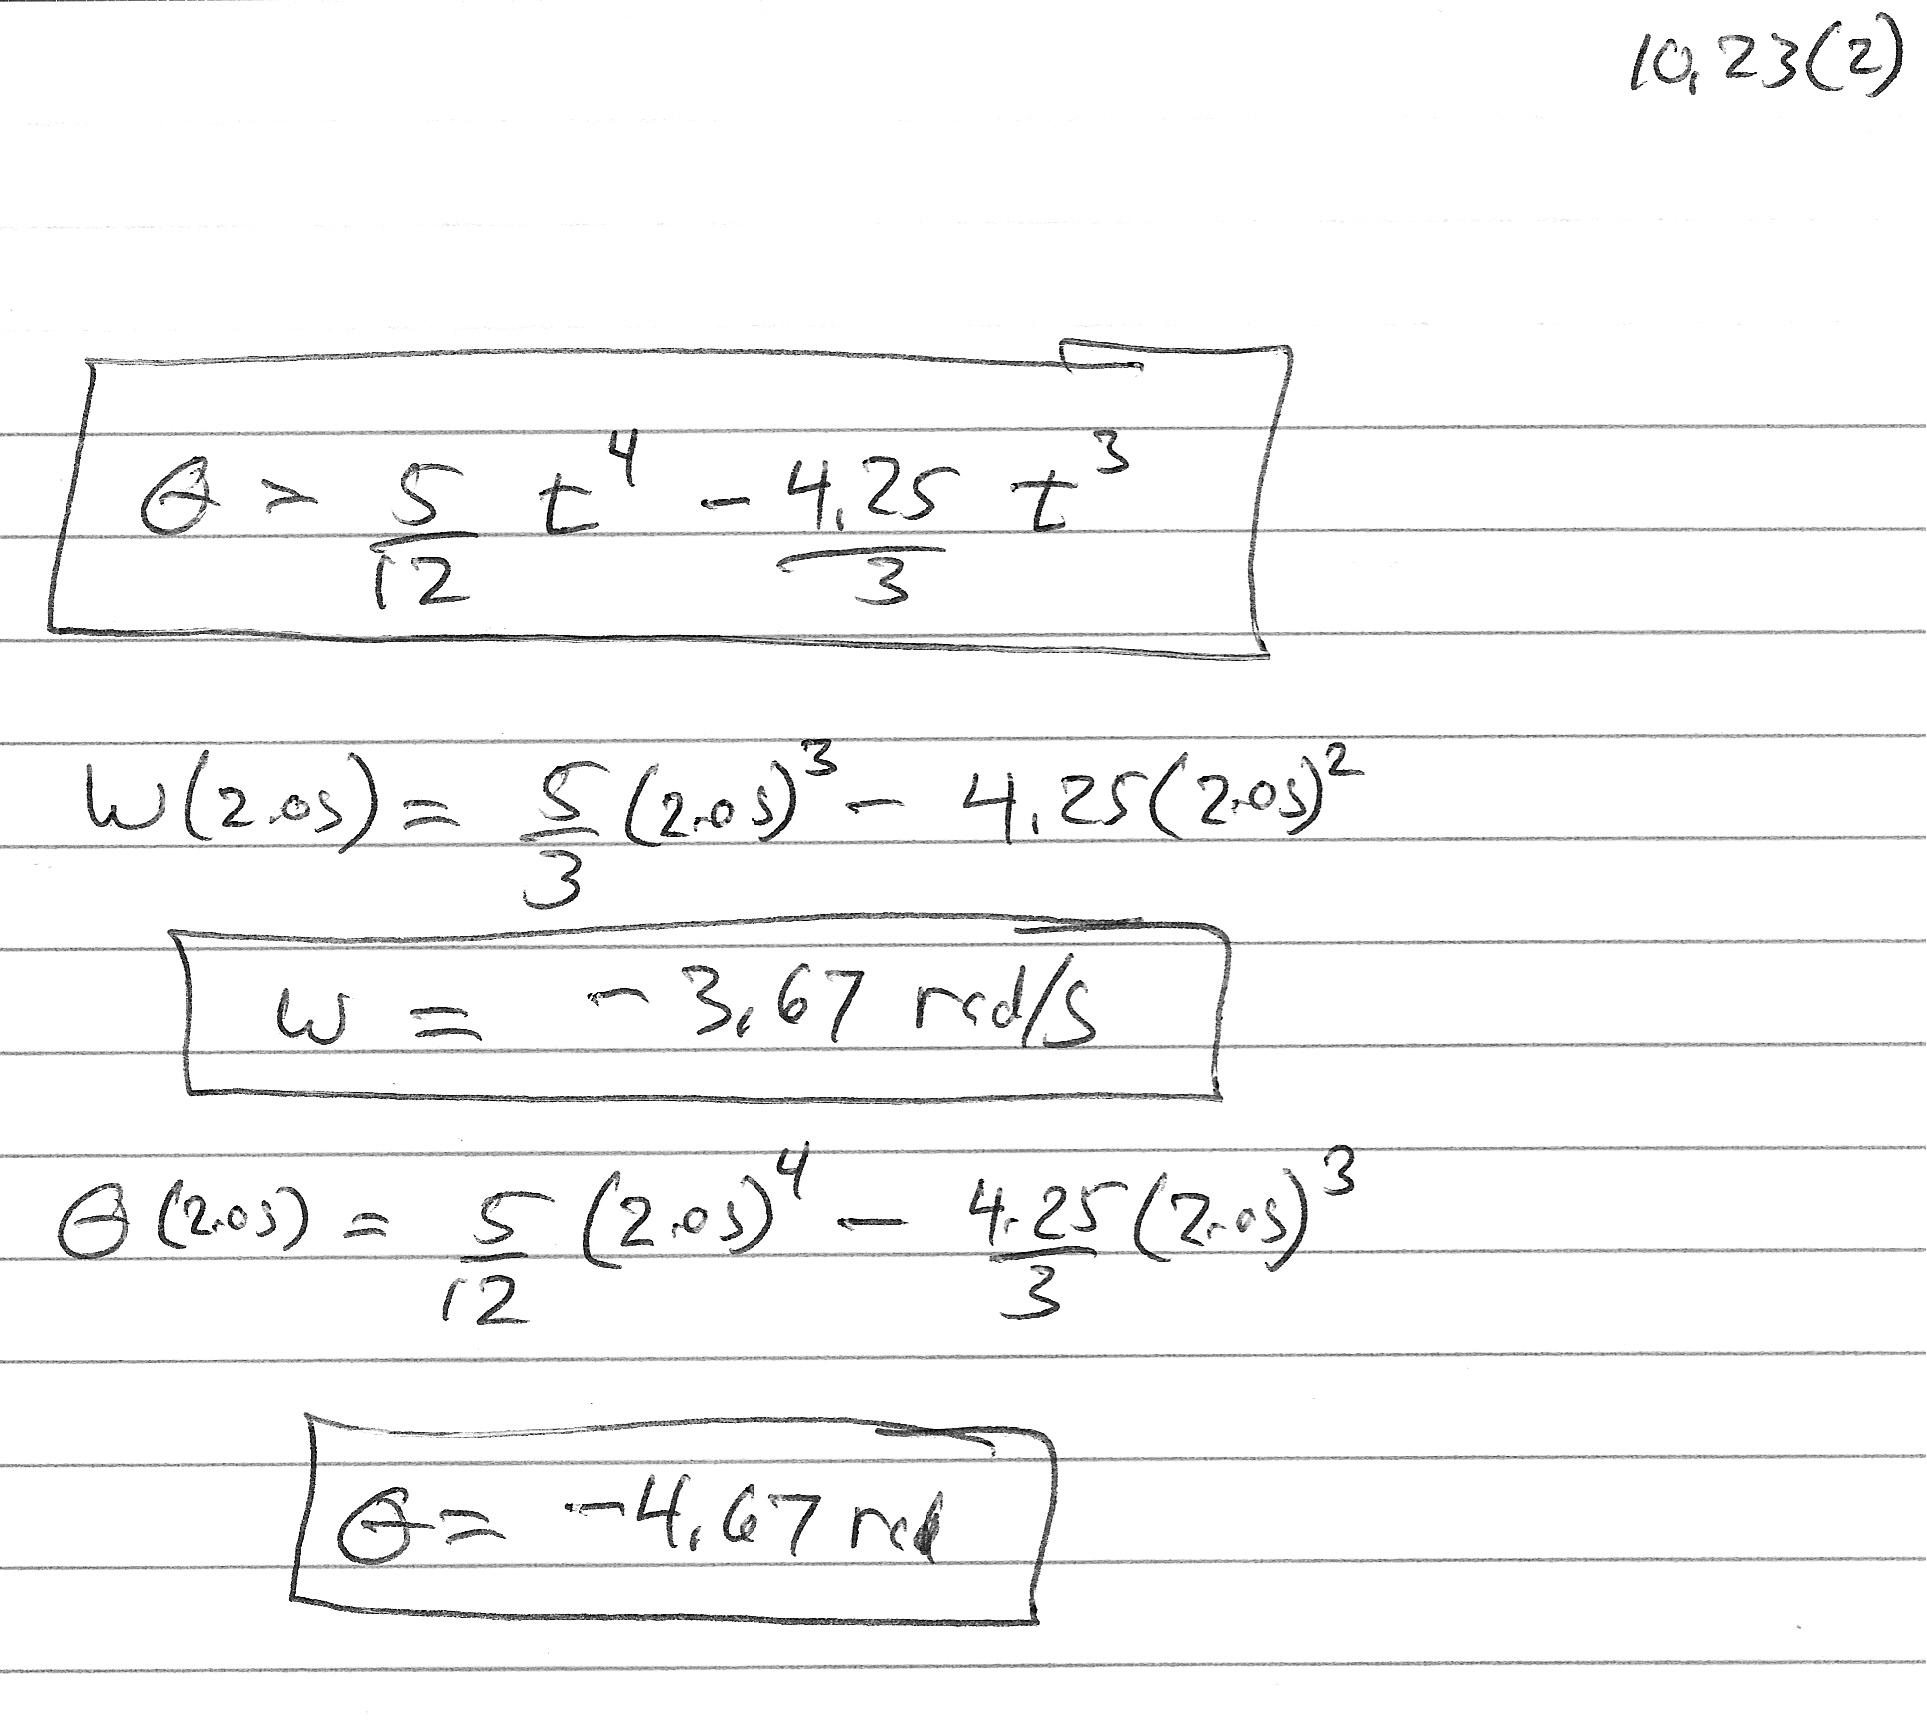 10.23(2)
θ = 5/12 t^4 - 4.25/3 t^3
ω(2.0s) = 5/3 (2.0s)^3 - 4.25(2.0s)^2
ω = -3.67 rad/s
θ(2.0s) = 5/12 (2.0s)^4 - 4.25/3 (2.0s)^3
θ = -4.67 rad